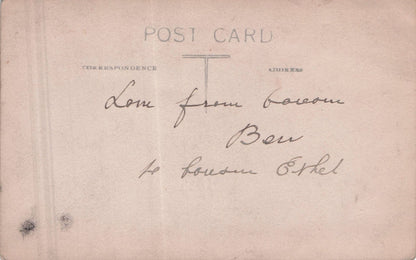 POST CARD
CORRESPONDENCE
ADDRESS
Love from cousin
Ben
to cousin Ethel